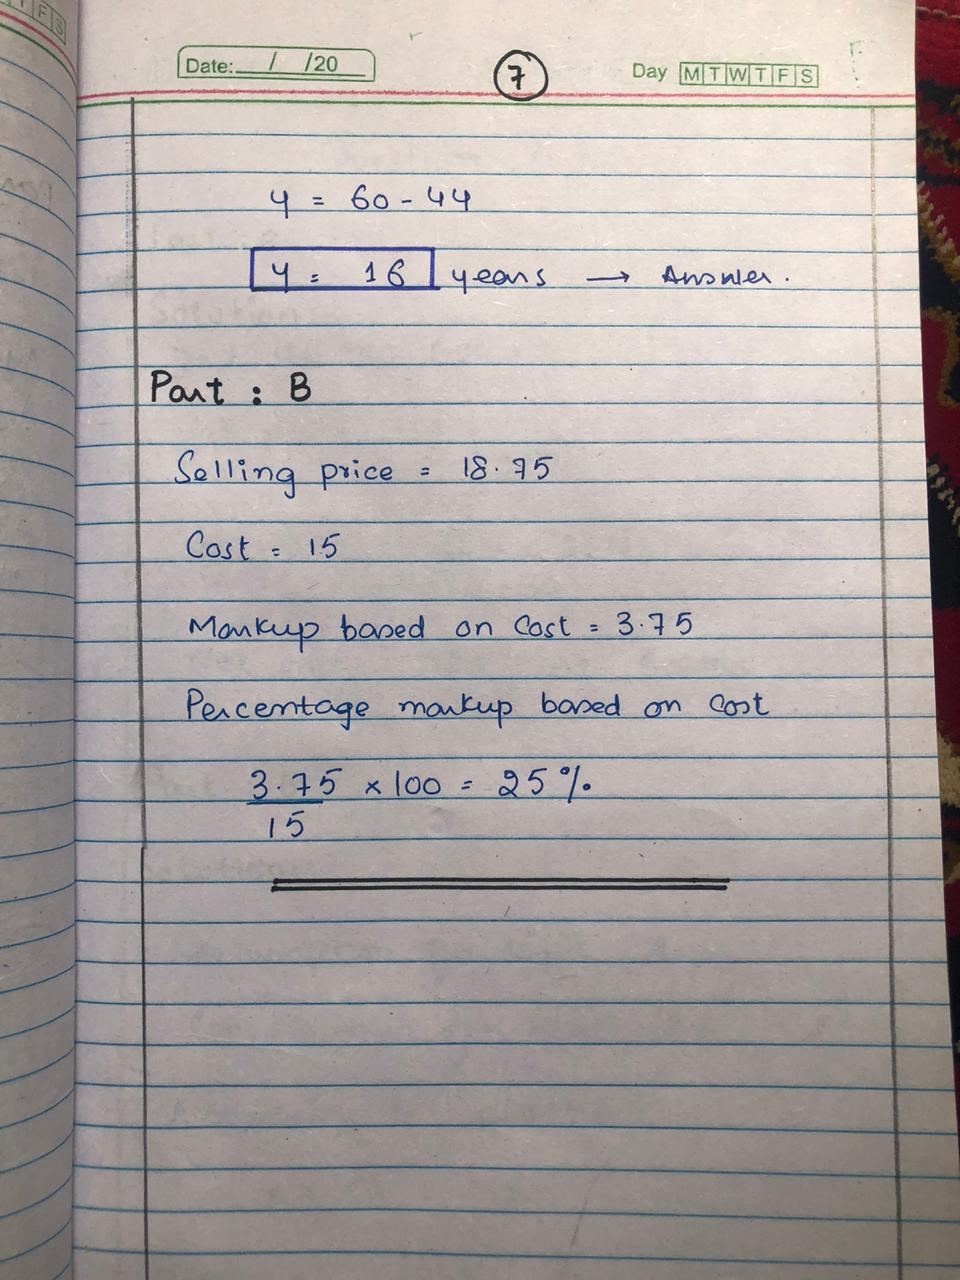 Date: / /20
7
Day M T W T F S
y = 60 - 44
y = 16 years → Answer.
Part : B
Selling price = 18.75
Cost = 15
Markup based on Cost = 3.75
Percentage markup based on Cost
3.75 × 100 = 25%
15